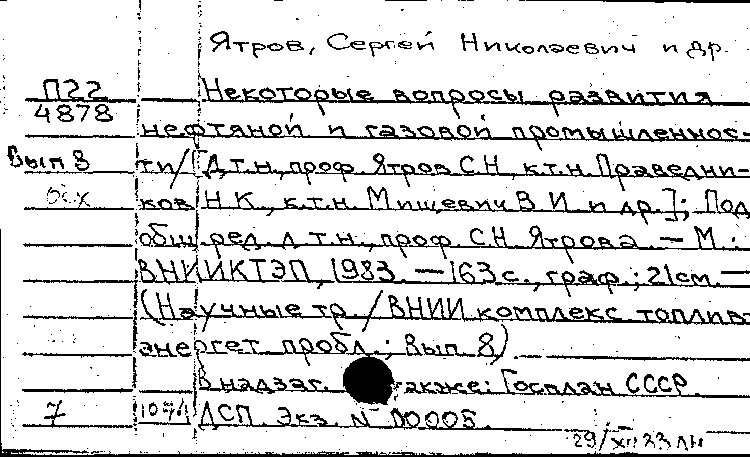 Ятров, Сергей Николаевич и др.
П22 Некоторые вопросы развития
4878 нефтяной и газовой промышленнос-
Вып 8 ти/[Д.т.н., проф. Ятров С.Н., к.т.н. Праведни-
ков Н.К., к.т.н. Мищевич В.И. и др.]; Под
общ. ред. д.т.н., проф. С.Н. Ятрова. — М.:
ВНИИКТЭП, 1983. — 163 с., граф.; 21 см. —
(Научные тр. / ВНИИ комплекс. топлив.-
энергет. пробл.; Вып. 8)
В надзаг. также: Госплан СССР.
7 ДСП. Экз. N 00005.
29/XII 83